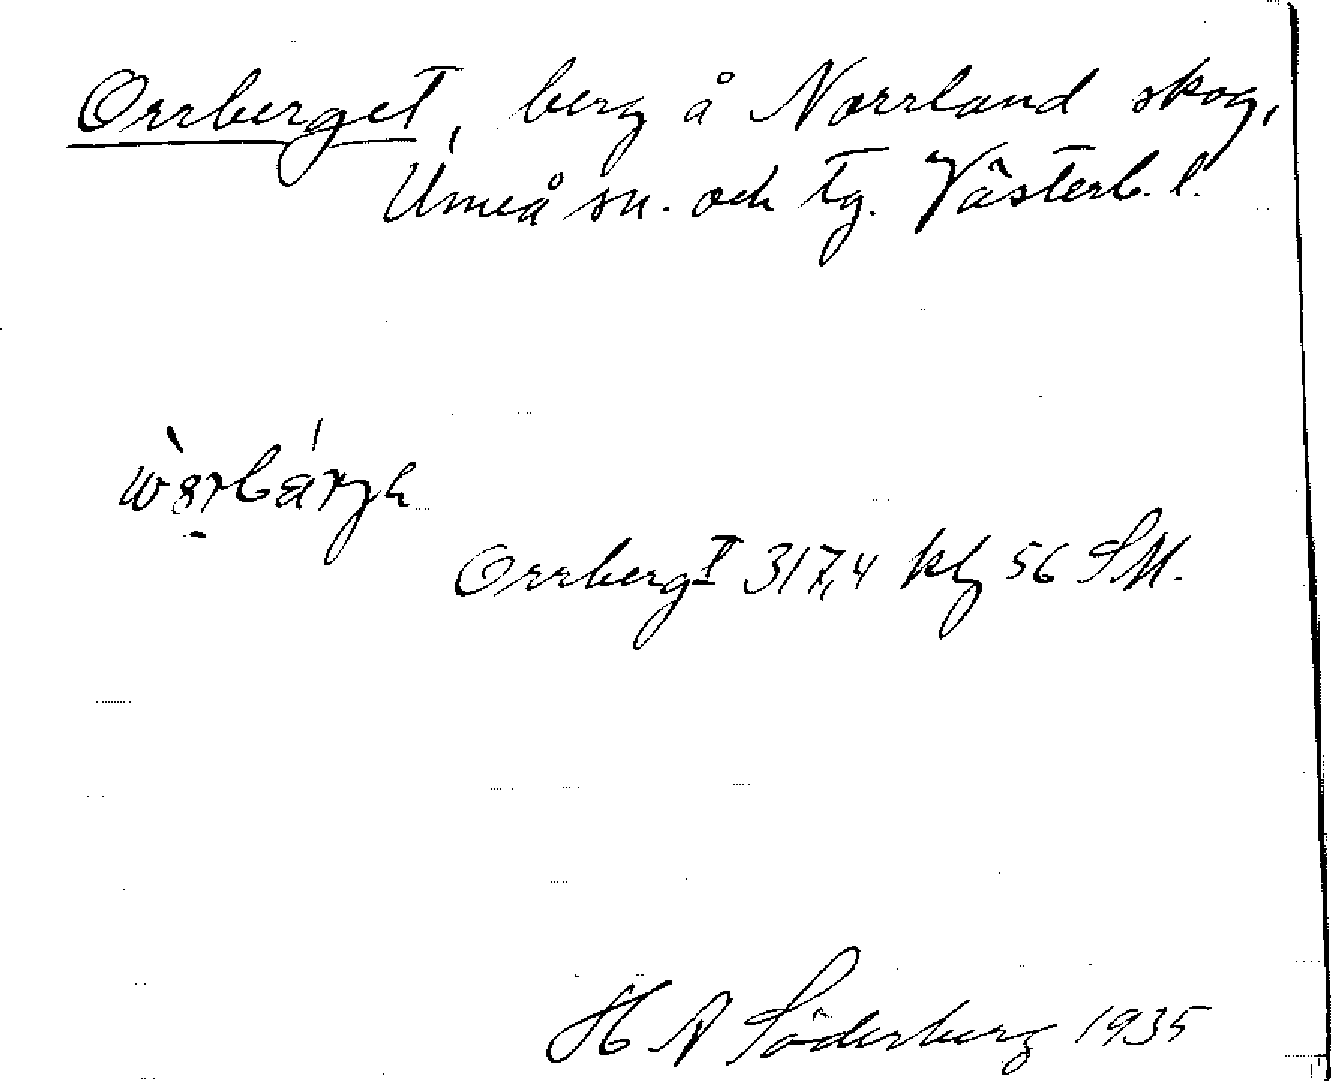 Orrberget, berg å Norrland skog,
Umeå sn. och tg. Västerb. l.
Orrbergt 317,4 kbl 56 SM.
H A Söderberg 1935